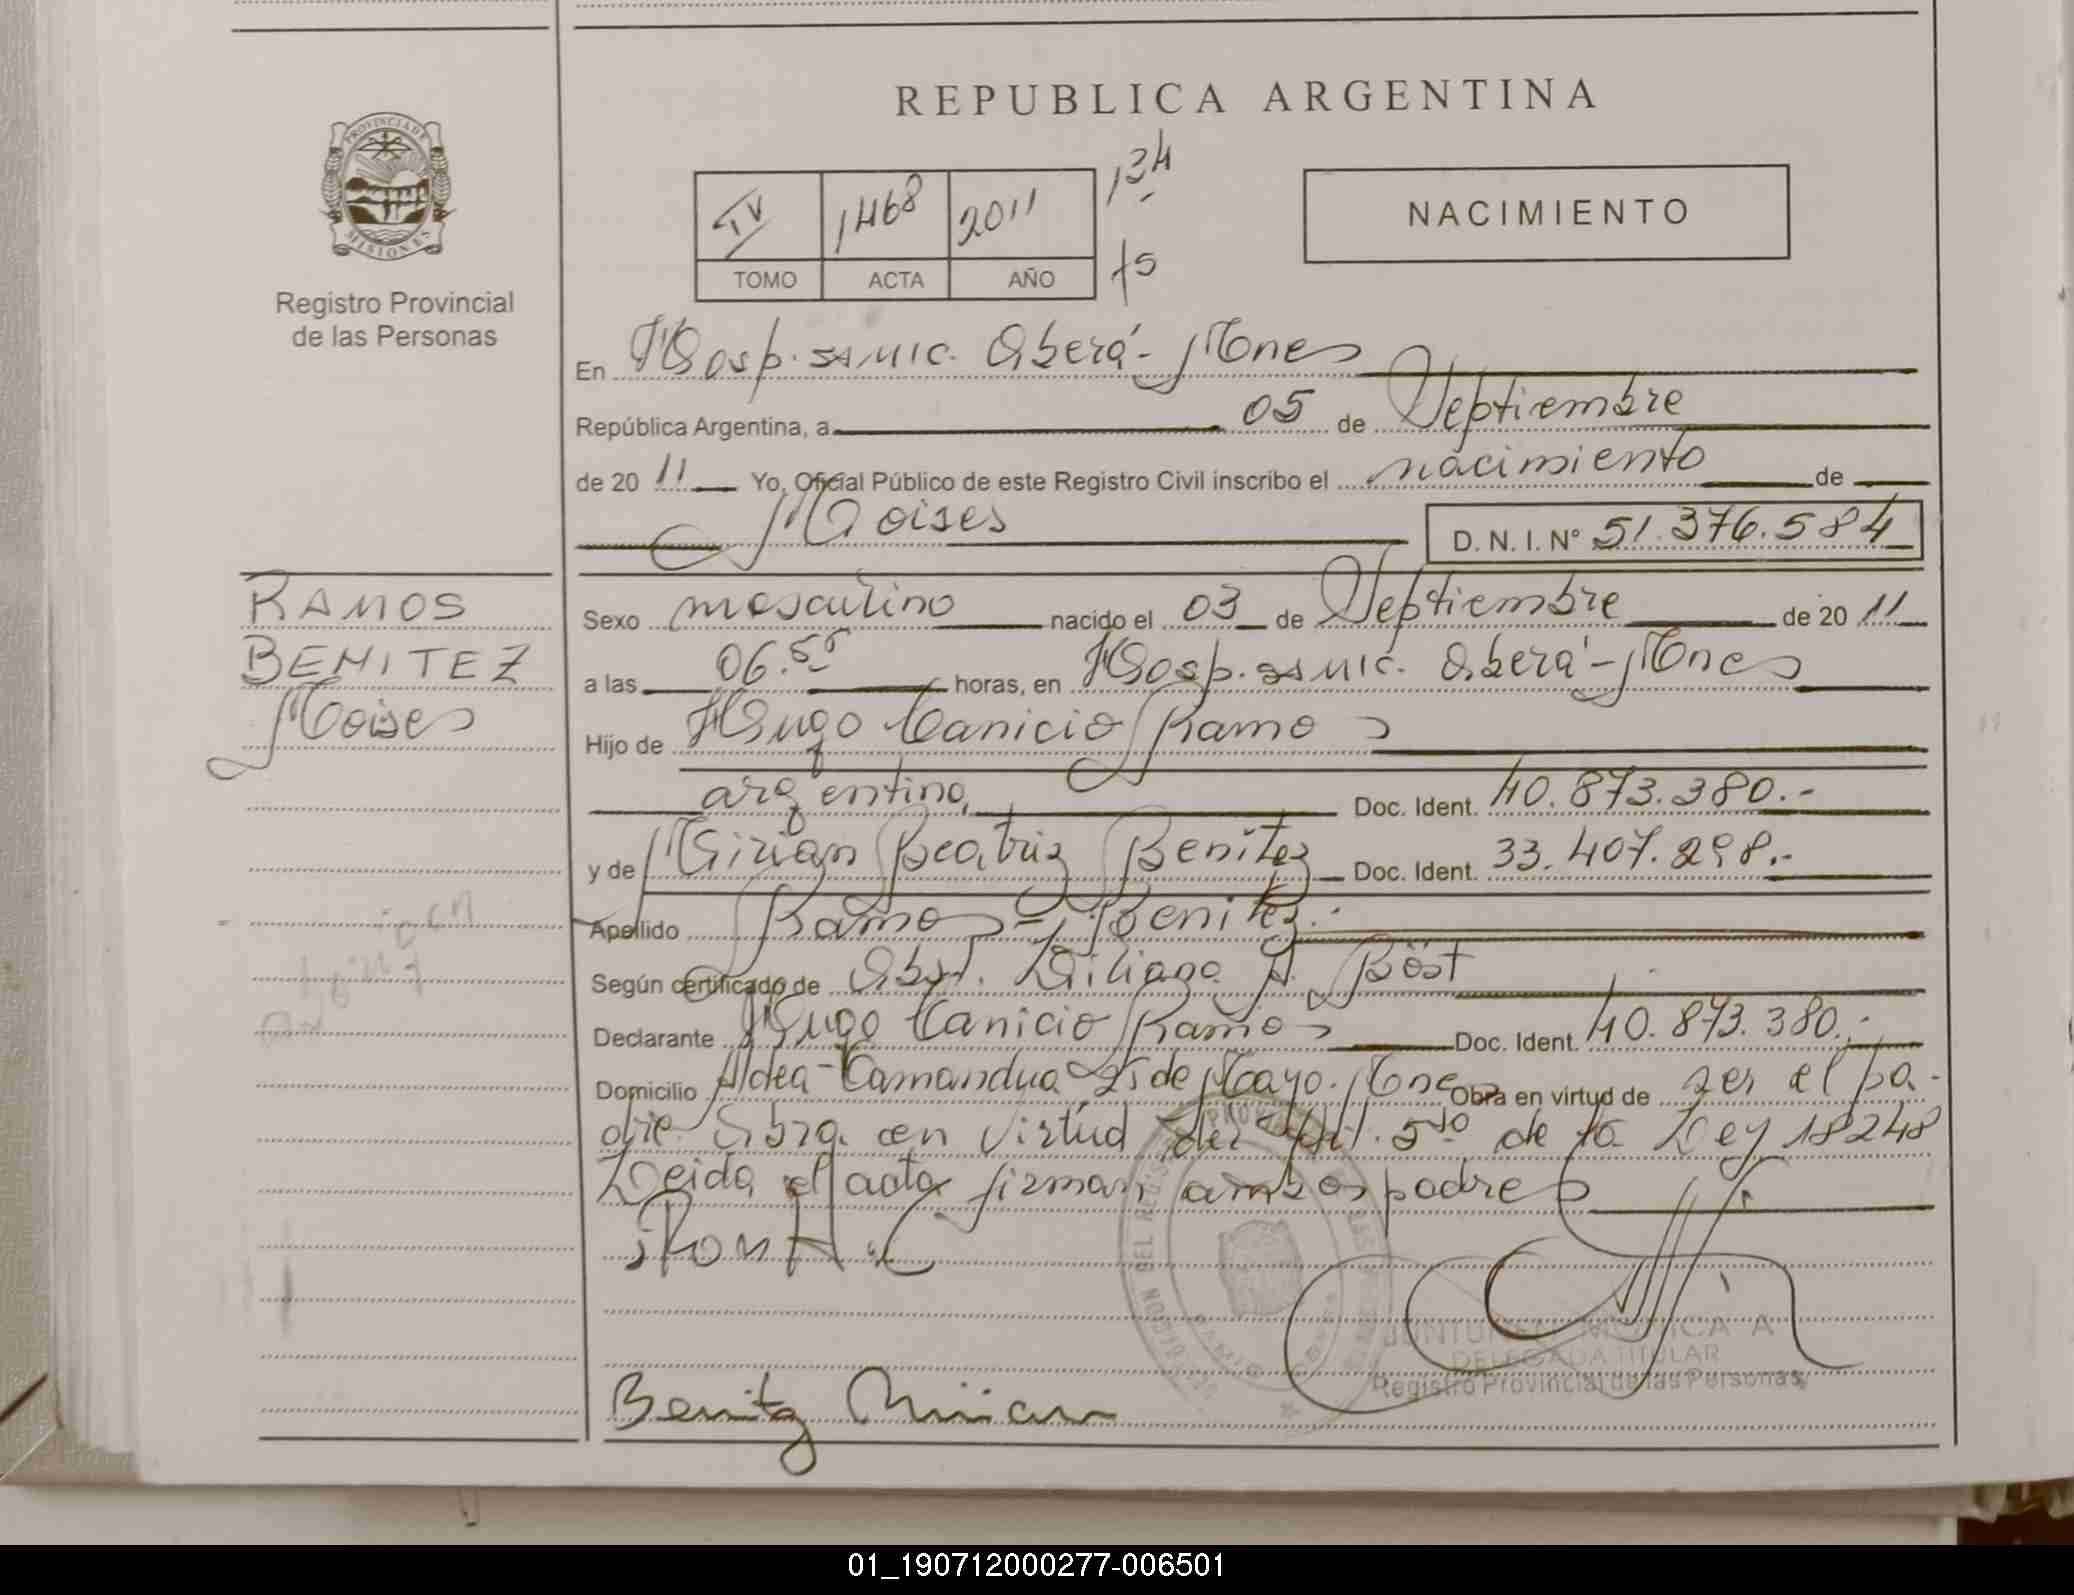 REPUBLICA ARGENTINA
PROVINCIA DE MISIONES
Registro Provincial
de las Personas
IV 1468 2011 134
TOMO ACTA AÑO
75
NACIMIENTO
En Hosp. SAMIC. Oberá - Mnes
República Argentina, a 05 de Septiembre
de 20 11 Yo, Oficial Público de este Registro Civil inscribo el nacimiento de
Moises D. N. I. Nº 51.376.584
RAMOS
BENITEZ
Moises
Sexo masculino nacido el 03 de Septiembre de 20 11
a las 06.55 horas, en Hosp. SAMIC. Oberá - Mnes
Hijo de Hugo Canicio Ramos
argentino, Doc. Ident. 40.873.380.-
y de Mirian Beatriz Benitez Doc. Ident. 33.407.298.-
Apellido Ramos = Benitez.
Según certificado de Obst. Liliana A. Böst
Declarante Hugo Canicio Ramos Doc. Ident. 40.873.380.-
Domicilio Aldea - Tamandua 25 de Mayo. Mnes Obra en virtud de ser el pa-
dre. Obra en virtud del Art. 5to de la Ley 18248
Leida el acta firman ambos padres
Benitez Mirian
MONICA A
DELEGADA TITULAR
Registro Provincial de las Personas
01_190712000277-006501